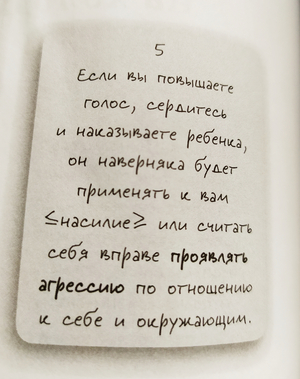 5
Если вы повышаете
голос, сердитесь
и наказываете ребенка,
он наверняка будет
применять к вам
≤насилие≥ или считать
себя вправе проявлять
агрессию по отношению
к себе и окружающим.